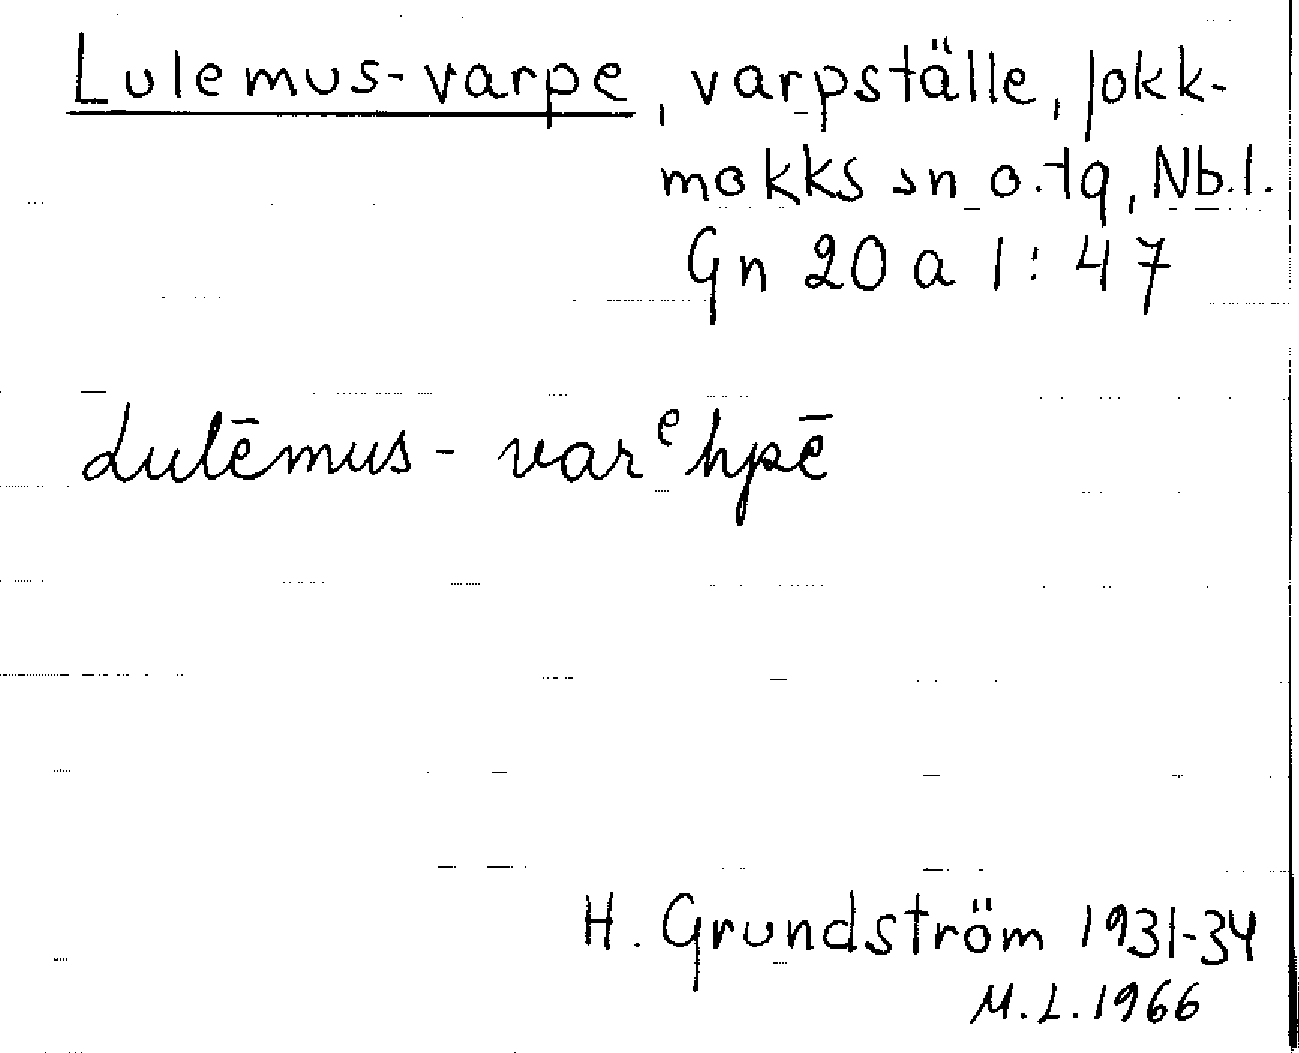 Lulemus-varpe, varpställe, Jokk-
mokks sn o. tg, Nb.l.
Gn 20 a 1:47
Lulēmus-varᵉhpē
H. Grundström 1931-34
M.L. 1966